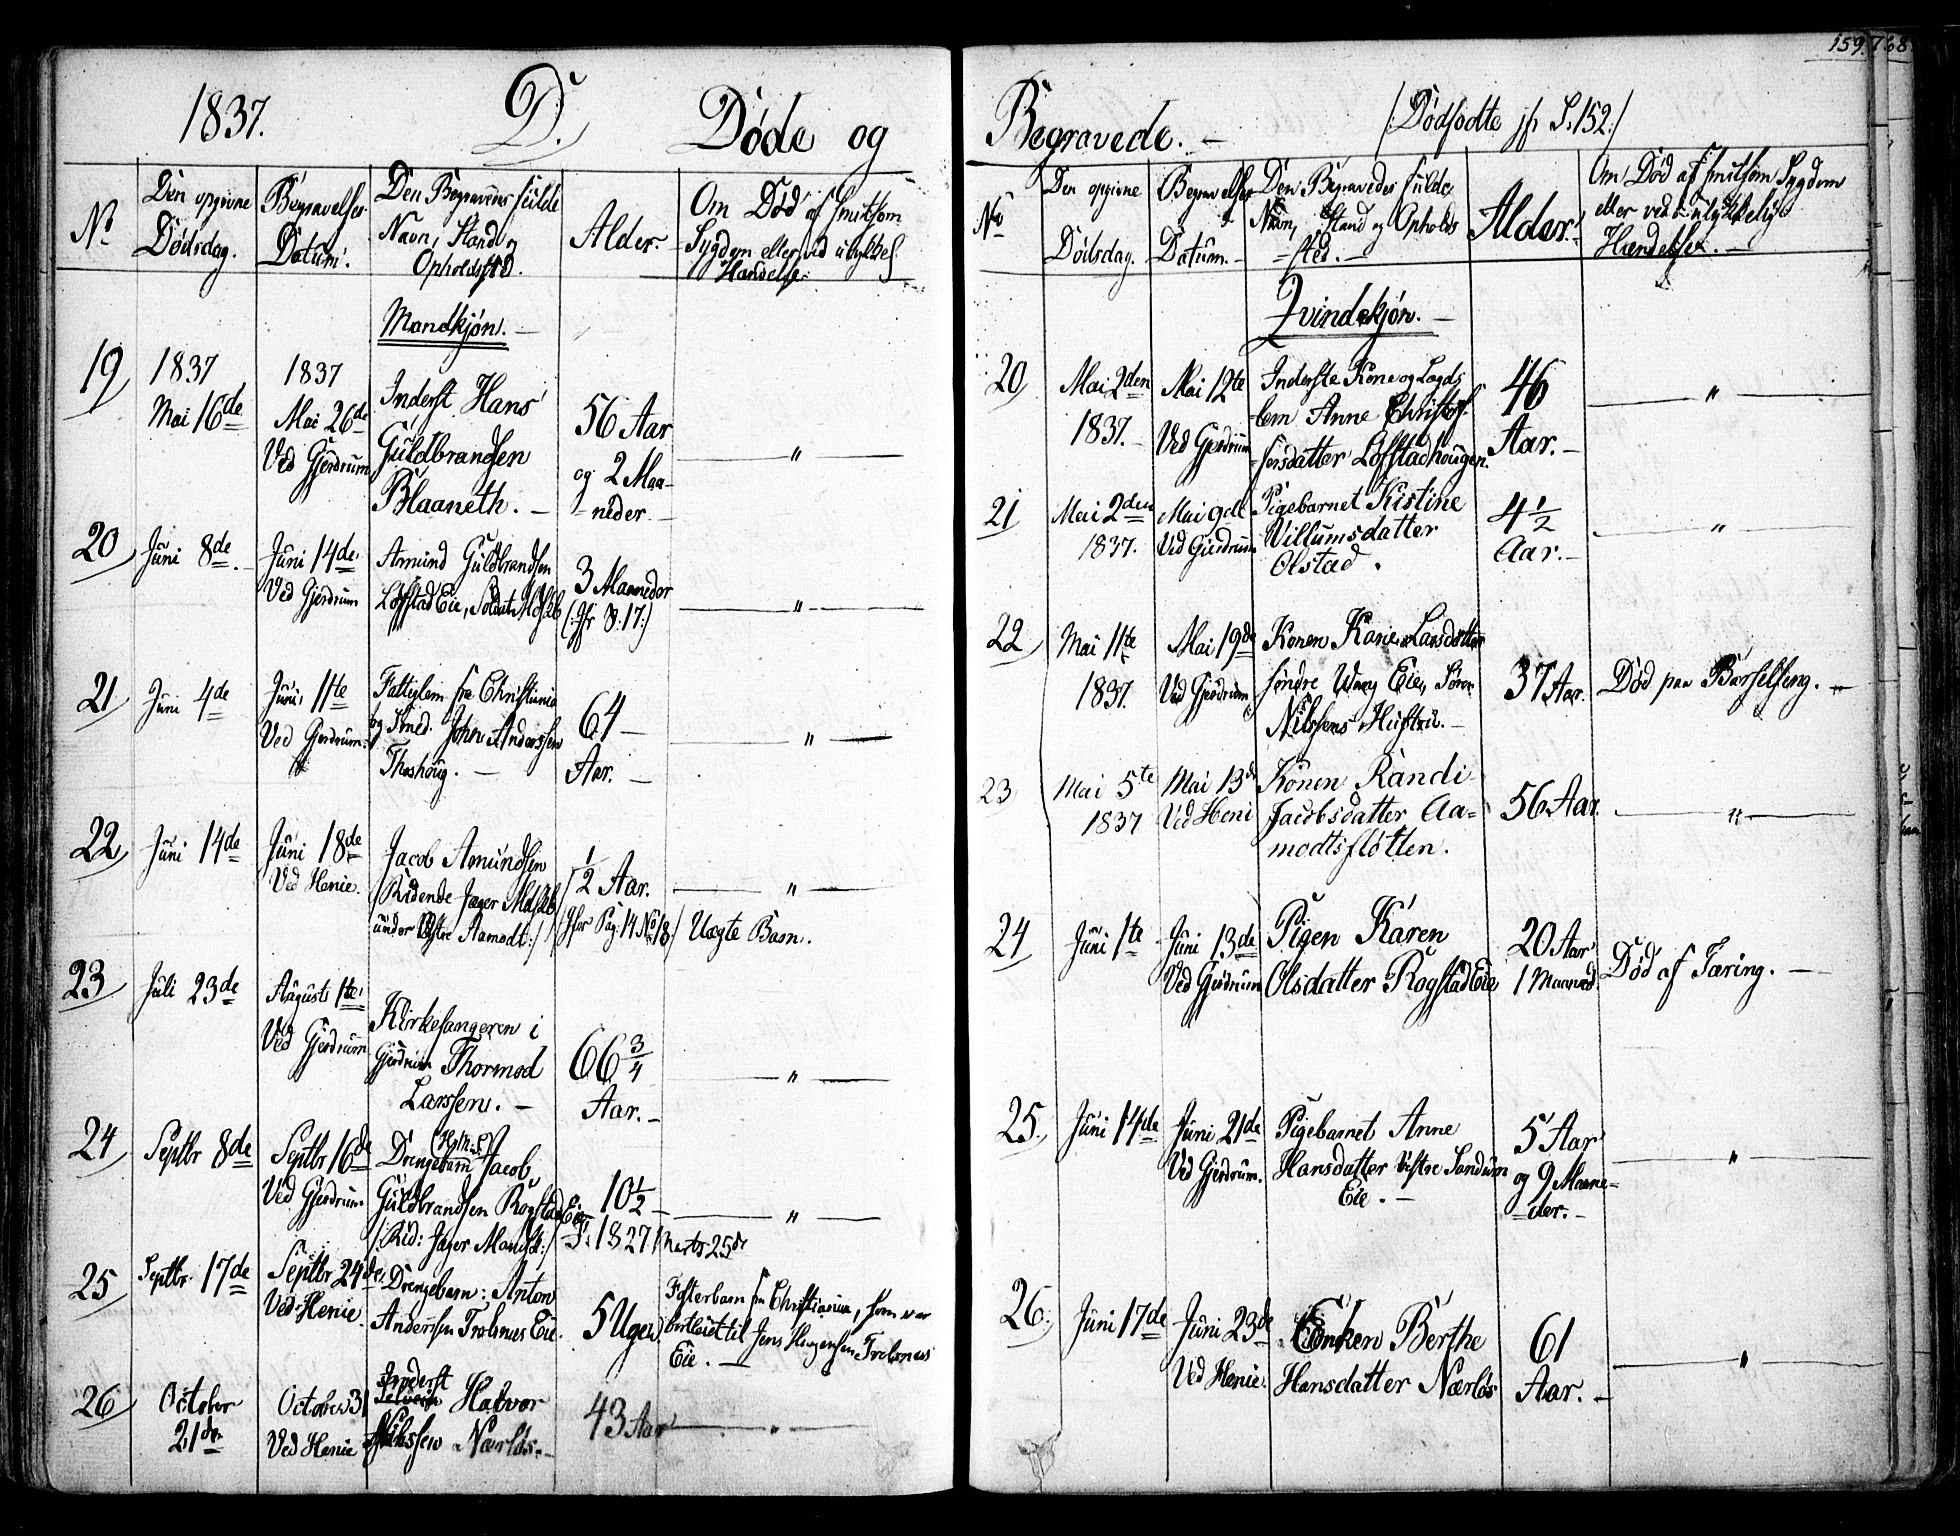 1837. D. Døde og
No
Den opgivne
Dødsdag.
Begravelses
Datum.
Den Begravens fulde
Navn, Stand og
Opholdsted.
Alder.
Om Død af smitsom
Sygdom eller ved ulykkel.
Handelse.
Mandkjøn.
19
1837
Mai 16de
1837
Mai 26de
Ved Gjerdrum
Inderst Hans
Guldbrandsen
Blaaneth.
56 Aar
og 2 Maa-
neder.
"
20
Juni 8de
Juni 14de
Ved Gjerdrum
Amund Guldbrandsen
Løfstad Eie,
3 Maaneder
(:Jfr S: 17:)
"
21
Juni 4de
Juni 11te
Ved Gjerdrum
Fattiglem fra Christiania
og Smed. John Anderssen
Thoshoug.
64
Aar.
"
22
Juni 14de
Juni 18de
Ved Henie.
Jacob Amundsen
(Ridende Jæger
under Østre Aamodt:/
1/2 Aar.
/Jfør Pag: 14 No 18:/
Uægte Barn.
23
Juli 23de
August 1te
Ved Gjerdrum
Kirkesangeren i
Gjerdrum Thormod
Larssen.
66 3/4
Aar.
"
24
Septbr 8de
Septbr 16de
Ved Gjerdrum
Drengebarn Jacob
Guldbrandsen Rogstad Eie
/Rid: Jæger Mandsk:/
10 1/2
F. 1827 Marts 25de
"
25
Septbr. 17de
Septbr 24de
Ved Henie
Drengebarn: Anton
Anderssen Trolsnes Eie.
5 Uger
Fosterbarn fra Christiania, som var
bortleiet til Jens Haagensen Trolsnes
Eie.
26
October
21de
October 31
Ved Henie
Inderst
Halvor
Nilssen Nærløs.
43 Aar
"
159. 768
Begravede. /Dødfødte jfr S. 152:/
No
Den opgivne
Dødsdag.
Begravelses
Datum.
Den Begravedes fulde
Navn, Stand og Opholds
sted.
Alder.
Om Død af smitsom Sygdom
eller ved ulykkelig
Hændelse.
Qvindekjøn.
20
Mai 2den
1837.
Mai 12te
Ved Gjerdrum
Inderste Kone og Lægds
lem Anne Christof-
fersdatter Løfstadhougen.
46
Aar.
"
21
Mai 2den
1837.
Mai 9de
Ved Gjerdrum
Pigebarnet Kistine
Villumsdatter
Olstad.
4 1/2
Aar.
"
22
Mai 11te
1837.
Mai 19de
Ved Gjerdrum
Konen Karie Larsdatter
søndre Eie, Søren
Nilssens Hustru.
37 Aar.
Død paa Barselseng.
23
Mai 5te
1837
Mai 13de
Ved Heni
Konen Randi
Jacobsdatter Aa-
modtsfløtten.
56 Aar.
"
24
Juni 1te
Juni 13de
Ved Gjerdrum
Pigen Karen
Olsdatter Rogstad Eie
20 Aar
1 Maaned.
Død af Tæring.
25.
Juni 14de
Juni 21de
Ved Gjerdrum.
Pigebarnet Anne
Hansdatter Vestre Sandum
Eie.
5 Aar
og 9 Maane-
der.
"
26.
Juni 17de
Juni 23de
Ved Henie.
Enken Berthe
Hansdatter Nærløs
61
Aar.
"